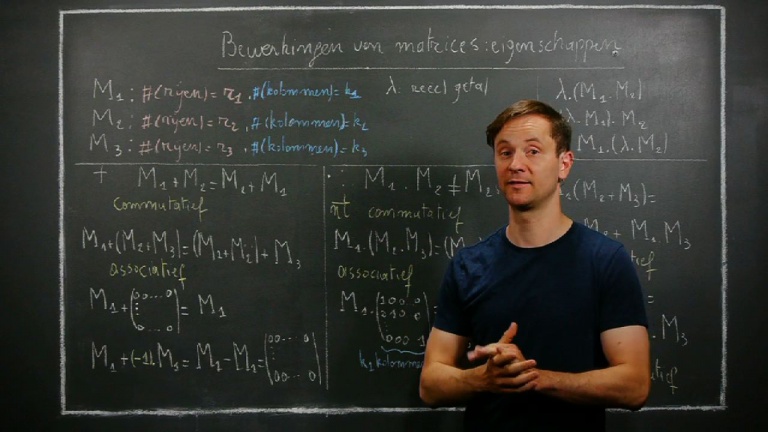 Bewerkingen van matrices: eigenschappen
M₁ : #(rijen) = r₁ , #(kolommen) = k₁
M₂ : #(rijen) = r₂ , #(kolommen) = k₂
M₃ : #(rijen) = r₃ , #(kolommen) = k₃
λ: reëel getal
λ.(M₁.M₂)
λ.M₁).M₂
M₁.(λ.M₂)
+ M₁+M₂=M₂+M₁
commutatief
M₁+(M₂+M₃)=(M₁+M₂)+M₃
associatief
M₁+(00...0 ⋮ 00...0)=M₁
M₁+(-1).M₁=M₁-M₁=(00...0 ⋮ 00...0)
· : M₁ . M₂ ≠ M₂
nt commutatief
M₁.(M₂.M₃)=(M₁
associatief
M₁.
k₁ kolommen
(M₂+M₃)=
M₂ + M₁.M₃
ef
=
M₃
tief